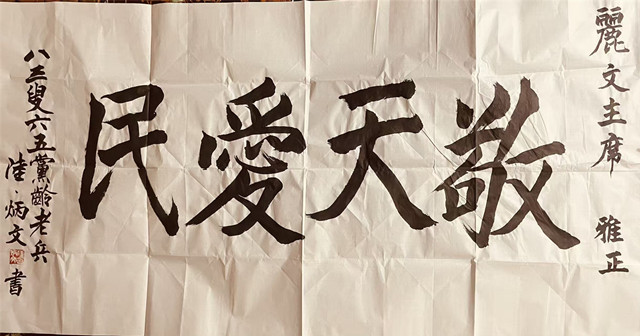 麗文主席 雅正
敬天愛民
八三叟六五黨齡老兵
陸炳文書